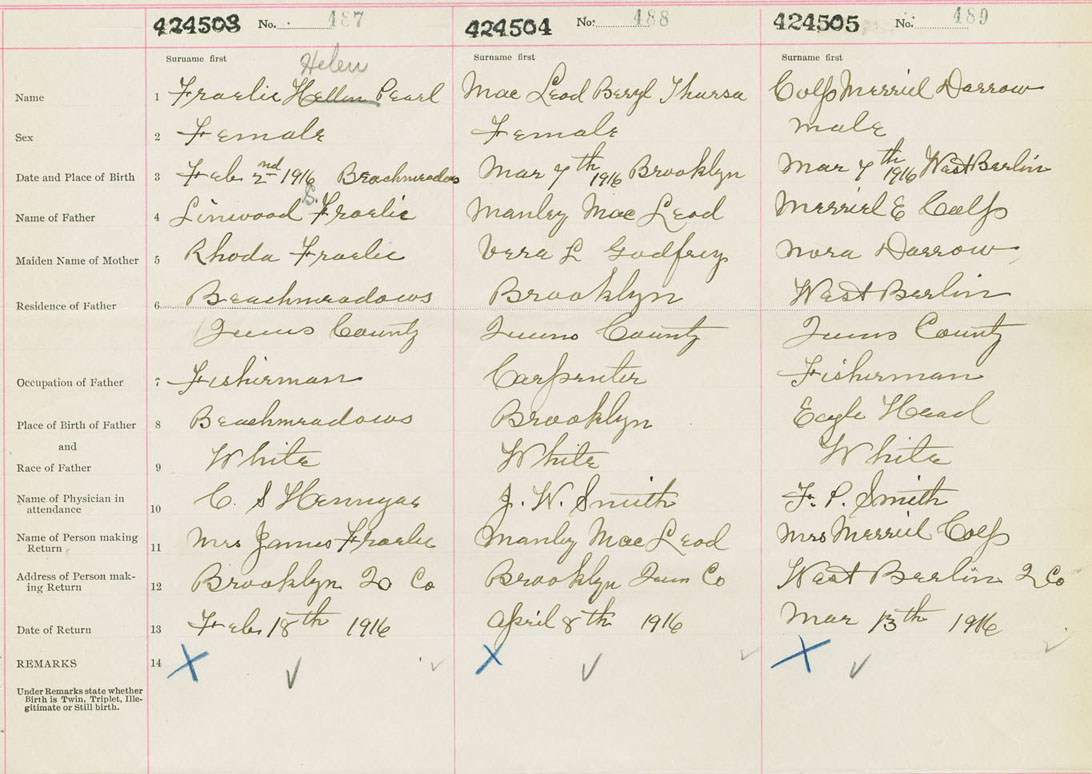 424503 No. 487 424504 No: 488 424505 No. 489
Surname first Helen Surname first Surname first
Name 1 Fraelic Hellen Pearl Mac Leod Beryl Thursa Colp Merriel Darrow
Sex 2 Female Female male
Date and Place of Birth 3 Feb 2nd 1916 Beachmeadows Mar 7th 1916 Brooklyn Mar 7th 1916 West Berlin
Name of Father 4 Linwood S Fraelic Manley Mac Leod Merriel E Colp
Maiden Name of Mother 5 Rhoda Fraelic Vera L Godfrey Nora Darrow
Residence of Father 6 Beachmeadows Brooklyn West Berlin
Queens County Queens County Queens County
Occupation of Father 7 Fisherman Carpenter Fisherman
Place of Birth of Father 8 Beachmeadows Brooklyn Eagle Head
and
Race of Father 9 White White White
Name of Physician in
attendance 10 C. S Hennigar J. W. Smith F. P. Smith
Name of Person making
Return 11 Mrs James Fraelic Manley Mac Leod Mrs Merriel Colp
Address of Person mak-
ing Return 12 Brooklyn Co Brooklyn Co West Berlin Q Co
Date of Return 13 Feb 18th 1916 April 8th 1916 Mar 13th 1916
REMARKS 14
Under Remarks state whether
Birth is Twin, Triplet, Ille-
gitimate or Still birth.